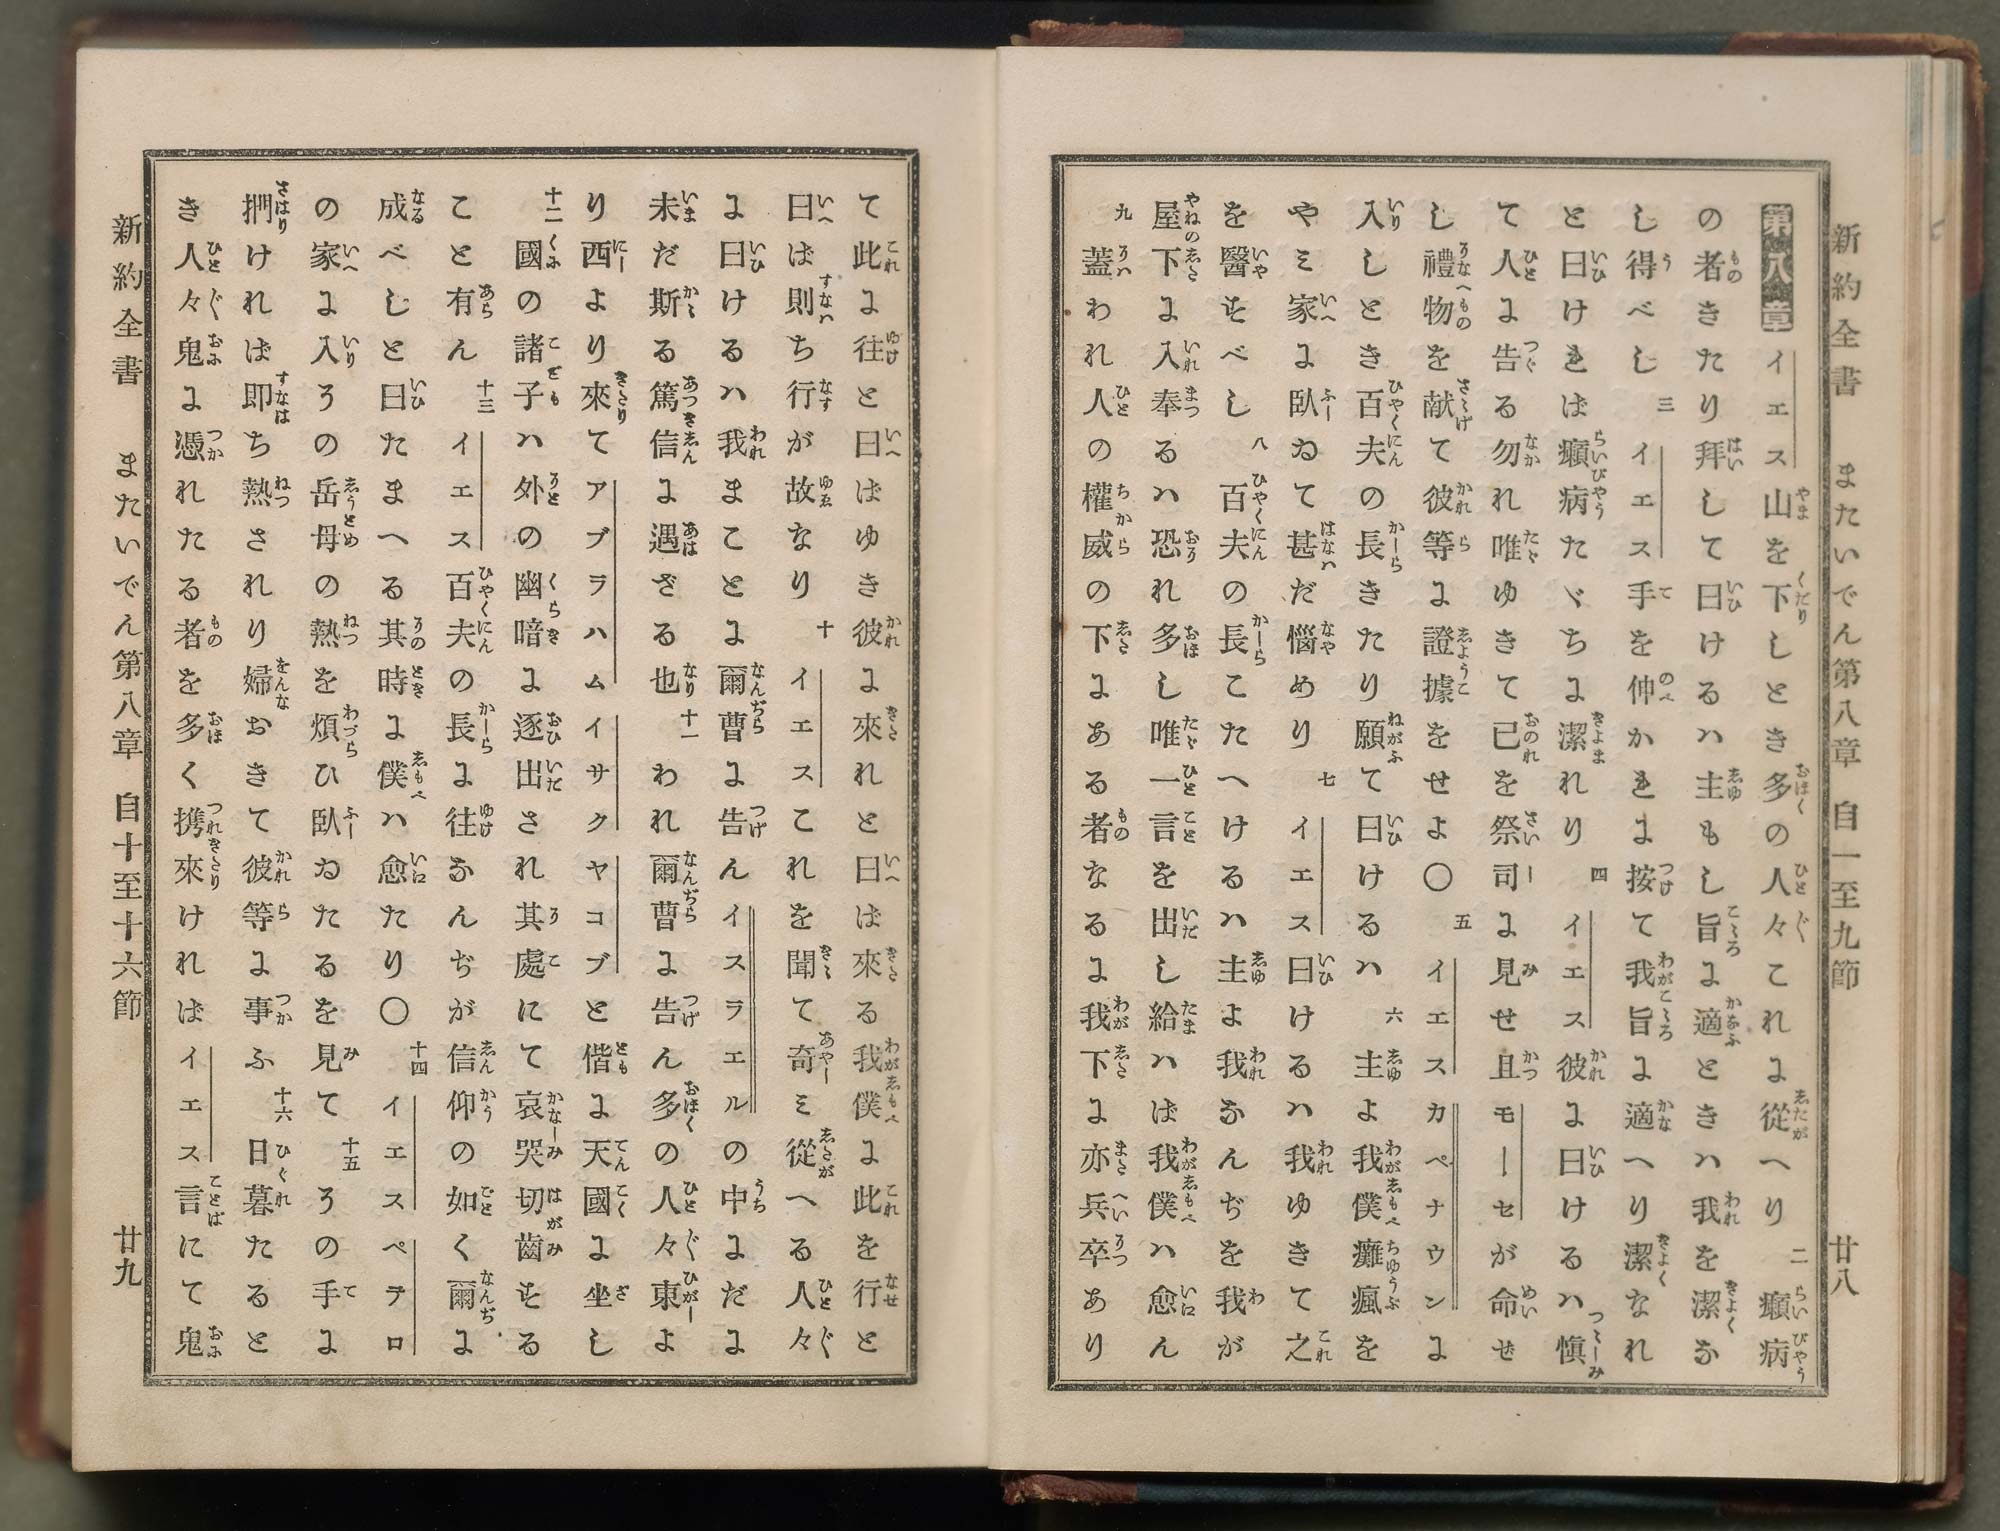 新約全書 またいでん第八章 自一至九節 廿八
第八章 イエス山を下しとき多の人々これに從へり 二 癩病
の者きたり拜して曰けるハ主もし旨に適ときハ我を潔な
し得べし 三 イエス手を伸かれに按て我旨に適へり潔なれ
と曰ければ癩病たゞちに潔れり 四 イエス彼に曰けるハ愼
て人に告る勿れ唯ゆきて己を祭司に見せ且モーセが命せ
し禮物を献て彼等に證據をせよ〇 五 イエスカペナウンに
入しとき百夫の長きたり願て曰けるハ 六 主よ我僕癱瘋を
やミ家に臥ゐて甚だ惱めり 七 イエス曰けるハ我ゆきて之
を醫すべし 八 百夫の長こたへけるハ主よ我なんぢを我が
屋下に入奉るハ恐れ多し唯一言を出し給ハば我僕ハ愈ん
九 蓋われ人の權威の下にある者なるに我下に亦兵卒あり
て此に往と曰ばゆき彼に來れと曰ば來る我僕に此を行と
曰ば則ち行が故なり 十 イエスこれを聞て奇ミ從へる人々
に曰けるハ我まことに爾曹に告んイスラエルの中にだに
未だ斯る篤信に遇ざる也 十一 われ爾曹に告ん多の人々東よ
り西より來てアブラハムイサクヤコブと偕に天國に坐し
十二 國の諸子ハ外の幽暗に逐出され其處にて哀哭切齒する
こと有ん 十三 イエス百夫の長に往なんぢが信仰の如く爾に
成べしと曰たまへる其時に僕ハ愈たり〇 十四 イエスペテロ
の家に入その岳母の熱を煩ひ臥ゐたるを見て 十五 その手に
捫ければ即ち熱され婦おきて彼等に事ふ 十六 日暮たると
き人々鬼に憑れたる者を多く携來ければイエス言にて鬼
新約全書 またいでん第八章 自十至十六節 廿九